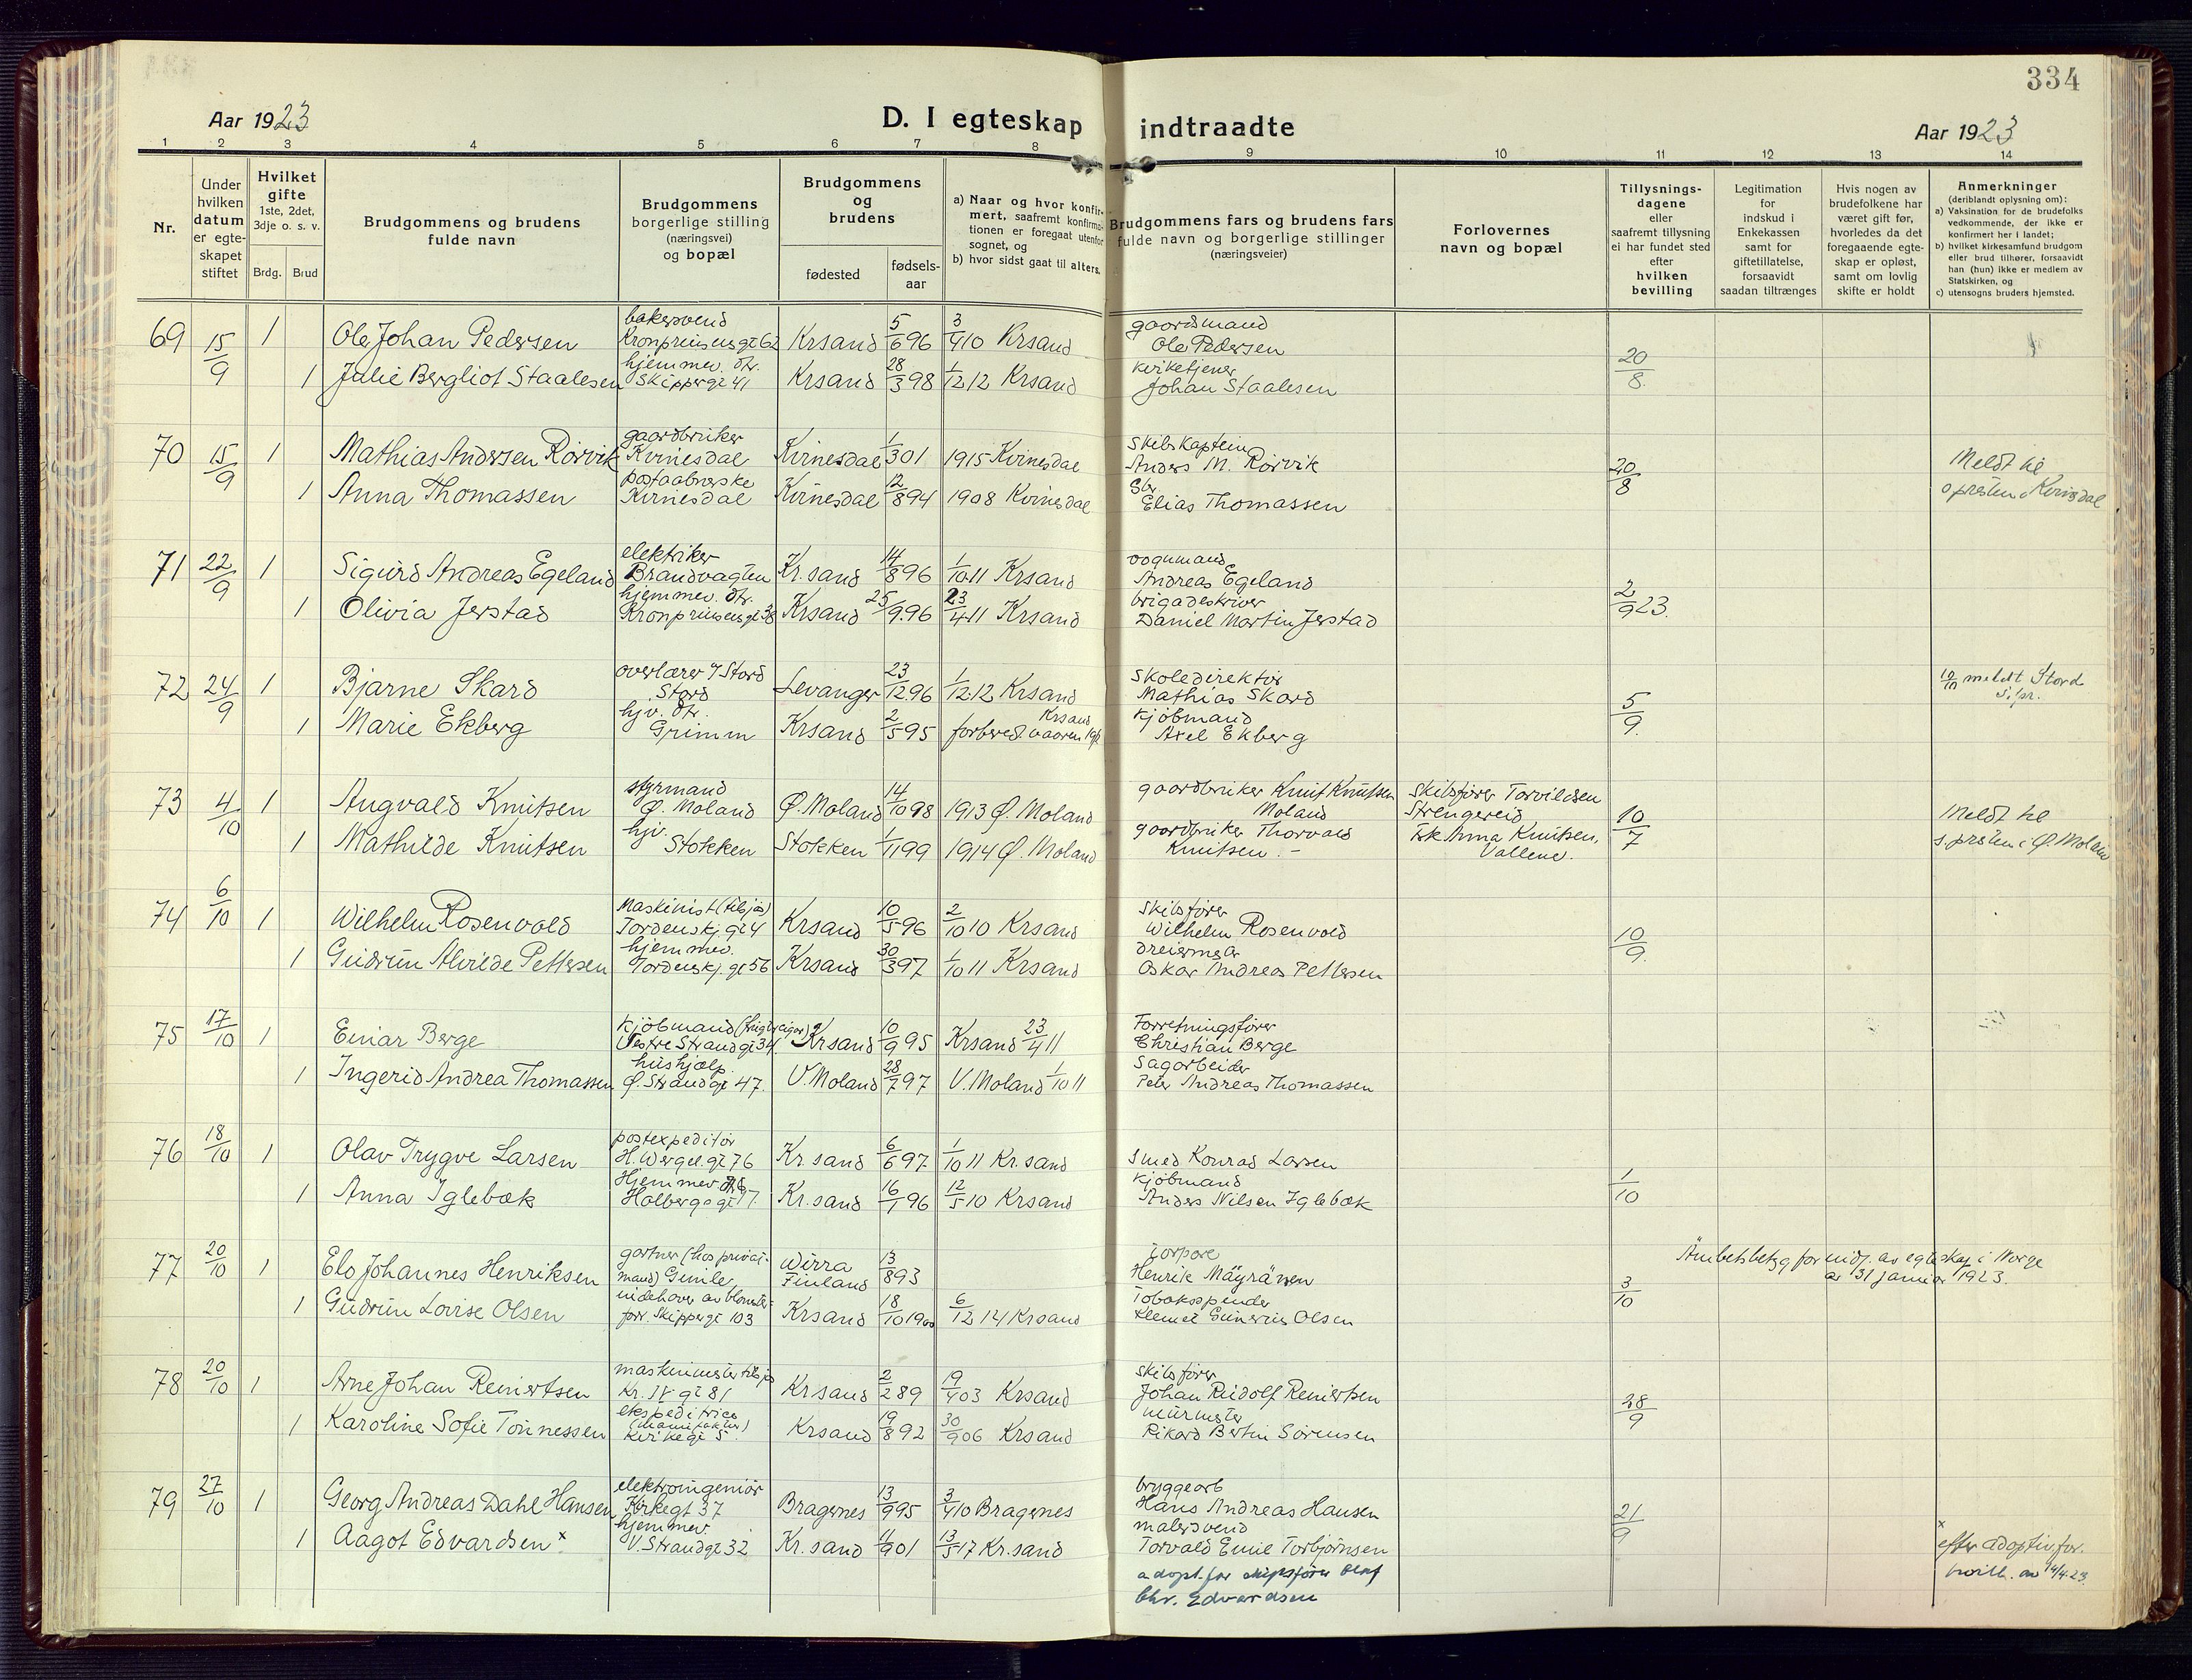 334
Aar 1923
D. I egteskap indtraadte
Aar 1923
1 2 3 4 5 6 7 8 9 10 11 12 13 14
Nr.
Under hvilken datum er egteskapet stiftet
Hvilket gifte 1ste, 2det, 3dje o. s. v.
Brdg. Brud
Brudgommens og brudens fulde navn
Brudgommens borgerlige stilling (næringsvei) og bopæl
Brudgommens og brudens
fødested
fødsels-aar
a) Naar og hvor konfirmert, saafremt konfirmationen er foregaat utenfor sognet, og
b) hvor sidst gaat til alters.
Brudgommens fars og brudens fars fulde navn og borgerlige stillinger (næringsveier)
Forlovernes navn og bopæl
Tillysnings-dagene eller saafremt tillysning ei har fundet sted efter hvilken bevilling
Legitimation for indskud i Enkekassen samt for giftetillatelse, forsaavidt saadan tiltrænges
Hvis nogen av brudefolkene har været gift før, hvorledes da det foregaaende egteskap er opløst, samt om lovlig skifte er holdt
Anmerkninger (deriblandt oplysning om):
a) Vaksination for de brudefolks vedkommende, der ikke er konfirmert her i landet;
b) hvilket kirkesamfund brudgom eller brud tilhører, forsaavidt han (hun) ikke er medlem av Statskirken, og
c) utensogns bruders hjemsted.
69 15/9 1 Ole Johan Pedersen bakersvend Kronprinsensgt 62 Krsand 5/6 96 3/4 10 Krsand gaardsmand Ole Pedersen 20/8
1 Julie Bergliot Staalesen hjemmev. dtr. Skippergt 41 Krsand 28/3 98 1/12 12 Krsand kirketjener Johan Staalesen
70 15/9 1 Mathias Andersen Rörvik gaardbruker Kvinesdal Kvinesdal 1/3 01 1915 Kvinesdal Skibskaptein Anders M. Rörvik 20/8 Meldt til
1 Anna Thomassen postaabnerske Kvinesdal Kvinesdal 12/8 94 1908 Kvinesdal Elias Thomassen s.presten i Kvinesdal
71 22/9 1 Sigurd Andreas Egeland elektriker Brandvagten Kr.sand 14/8 96 1/10 11 Krsand vognmand Andreas Egeland 2/9 23.
1 Olivia Jerstad hjemmev. dtr. Kronprinsensgt 38 Krsand 25/9 96 23/4 11 Krsand brigadeskriver Daniel Martin Jerstad
72 24/9 1 Bjarne Skard overlærer Stord Levanger 23/12 96 1/12 12 Krsand Skoledirektör Mathias Skard 5/9 meldt Stord s.pr.
1 Marie Ekberg hjv. dtr. Grimm Krsand 2/5 95 Krsand kjöbmand Axel Ekberg
73 4/10 1 Angvald Knutsen styrmand Ø. Moland Ø. Moland 14/10 98 1913 Ø. Moland gaardbruker Knut Knutsen Moland Skibsfører Torvildsen Strengereid 10/7 Meldt til
1 Mathilde Knutsen hjv. Stokken Stokken 1/1 99 1914 Ø. Moland gaardbruker Thorvald Knutsen. Frk. Anna Knutsen, Vallene. s.presten i Ø. Moland
74 6/10 1 Wilhelm Rosenvold Maskinist (tilsjøs) Tordenskj.gt 4 Krsand 10/5 96 2/10 10 Krsand Skibsfører Wilhelm Rosenvold 10/9
1 Gudrun Alvilde Pettersen hjemmev. Tordenskj.gt 56 Krsand 30/3 97 1/10 11 Krsand Oskar Andreas Pettersen
75 17/10 1 Einar Berge Kjöbmand Vestre Strandgt 34 Krsand 10/9 95 Krsand 23/4 11 Forretningsfører Christian Berge
1 Ingerid Andrea Thomassen hushjælp Ø. Strandgt 47. V. Moland 28/7 97 V. Moland 1/10 11 Sagarbeider Peter Andreas Thomassen
76 18/10 1 Olav Trygve Larsen postexpeditör H. Wergel.gt 76 Kr.sand 6/6 97 1/10 11 Kr.sand Smed Konrad Larsen 1/10
1 Anna Iglebæk Hjemmev. Holbergsgt 17. Kr.sand 16/1 96 12/5 10 Krsand Kjöbmand Anders Nilsen Iglebæk
77 20/10 1 Elo Johannes Henriksen gartner (hos privatmand) Gimle Wirra Finland 13/8 93 Henrik Mäyränen 3/10 Ämbetsbetyg for indg. av egteskap i Norge av 31 januar 1923.
1 Gudrun Lovise Olsen indehaver av blomsterforr. Skippergt 103 Krsand 18/10 1900 6/12 14 Krsand Tobakspinder Klemet Gunerius Olsen
78 20/10 1 Arne Johan Reinertsen maskinmester tilsjøs Kr. IV gt 81 Krsand 2/2 89 19/4 03 Krsand Skibsfører Johan Rudolf Reinertsen 28/9
1 Karoline Sofie Tönnessen ekspeditrice (manufaktur) Kirkegt 5 Krsand 19/8 92 30/9 06 Krsand murmester Rikard Bertin Sörensen
79 27/10 1 Georg Andreas Dahl Hansen elektroingeniör Kirkegt 37 Bragernes 13/9 95 3/4 10 Bragernes bryggearb Hans Andreas Hansen 21/9
1 Aagot Edvardsen x hjemmev. V. Strandgt 32 Kr.sand 11/9 01 13/5 17 Kr.sand malersvend Torvald Emil Torbjörnsen x efter adoption
adopt. far skipsfører Olaf Chr. Edvardsen 14/4 23.